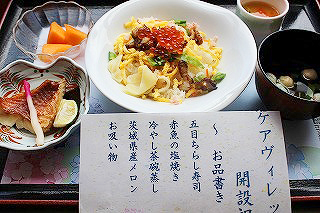 ケアヴィレッ
開設記
～ お品書き
五目ちらし寿司
赤魚の塩焼き
冷やし茶碗蒸し
茨城県産メロン
お吸い物